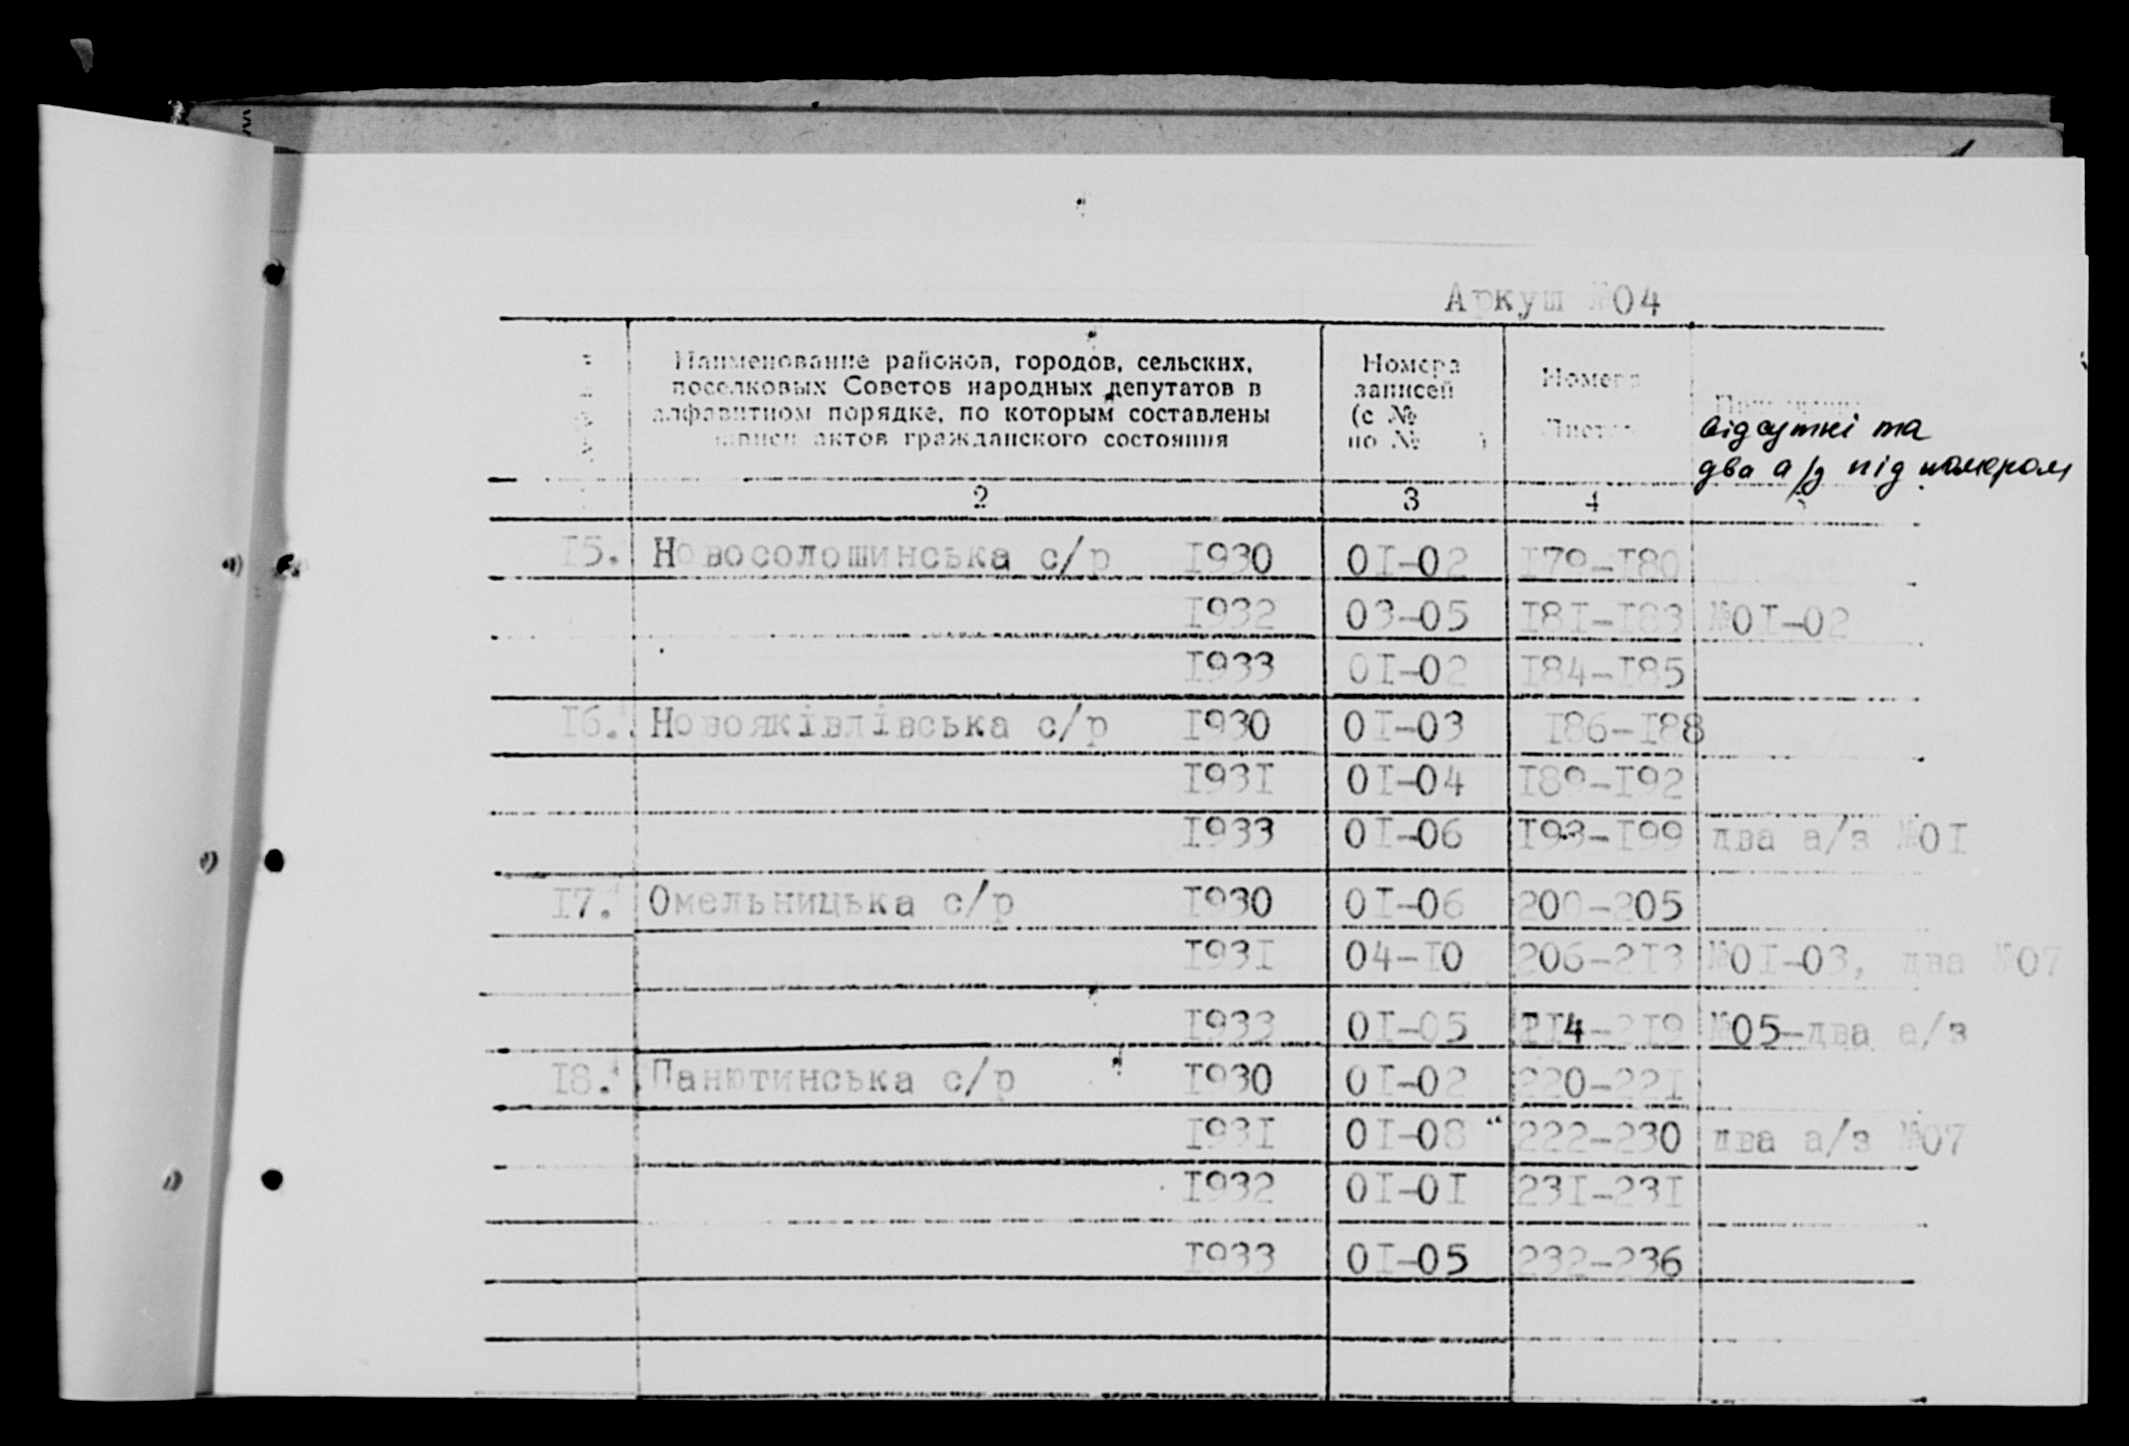 Аркуш №04
Наименование районов, городов, сельских,
поселковых Советов народных депутатов в
алфавитном порядке, по которым составлены
записи актов гражданского состояния
Номера
записей
(с №
по №
Номера
Листов
Примечание
відсутні та
два а/з під номером
2 3 4
15. Новосолошинська с/р 1930 01-02 179-180
1932 03-05 181-183 №01-02
1933 01-02 184-185
16. Новояківлівська с/р 1930 01-03 186-188
1931 01-04 189-192
1933 01-06 193-199 два а/з №01
17. Омельницька с/р 1930 01-06 200-205
1931 04-10 206-213 №01-03, два №07
1933 01-05 214-219 №05-два а/з
18. Панютинська с/р 1930 01-02 220-221
1931 01-08 222-230 два а/з №07
1932 01-01 231-231
1933 01-05 232-236